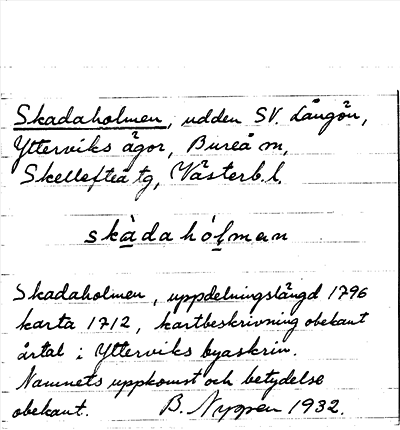 Skadaholmen, udden SV. Långön,
Ytterviks ägor, Bureå m,
Skellefteå tg, Västerb. l.
skàdahólman
Skadaholmen, uppdelningslängd 1796
karta 1712, kartbeskrivning obekant
årtal i Ytterviks byaskrin.
Namnets uppkomst och betydelse
obekant. B. Nygren 1932.